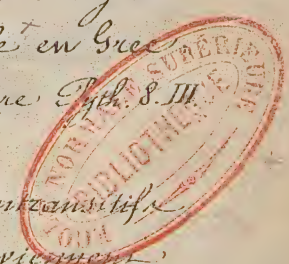 en Grec
Pyth. 8. III
intransitifs
viennent
NORMALE SUPÉRIEURE
BIBLIOTHÈQUE